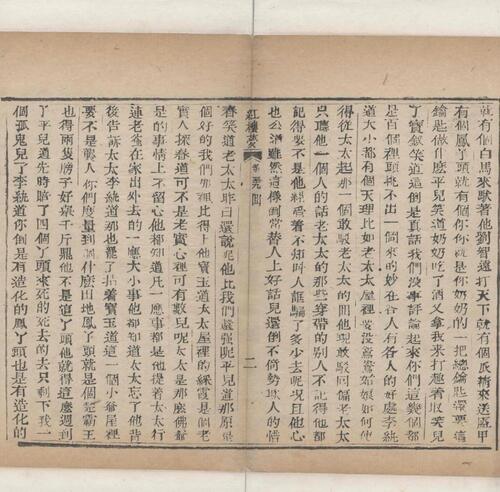 就有個白馬來馱著他劉智遠打天下就有個瓜精來送盔甲
有個鳳丫頭就有個你你就是你奶奶的一把總鑰匙還要這
鑰匙做什麼平兒笑道奶奶吃了酒又拿我來打趣着取笑兒
了寶釵笑道這倒是真話我們沒事評論起來你們這幾個都
是百個裡頭挑不出一個來的妙在各人有各人的好處李紈
道大小都有個天理比如老太太屋裡要沒鴛鴦姑娘如何使
得從太太起那一個敢駁老太太的回他現敢駁回偏老太太
只聽他一個人的話老太太的那些穿帶的別人不記得他都
記得要不是他經管着不知叫人誆騙了多少去呢况且他心
也公道雖然這樣倒常替人上好話兒還倒不倚勢欺人的惜
紅樓夢 回 二
春笑道老太太昨日還說呢他比我們還強呢平兒道那原是
個好的我們那裡比得上他寶玉道太太屋裡的彩霞是個老
實人探春道可不是老實心裡可有數兒呢太太是那麼佛爺
是的事情上不留心他都知道凡一應事都是他提着太太行
連老爺在家出外去的一應大小事他都知道太太忘了他背
後告訴太太李紈道那也罷了指着寶玉道這一個小爺屋裡
要不是襲人你們度量到個什麼田地鳳丫頭就是個楚霸王
也得兩隻膀子好舉千斤鼎他不是這丫頭他就得這麼週到
了平兒道先時賠了四個丫頭來死的死去的去只剩下我一
個孤鬼兒了李紈道你倒是有造化的鳳丫頭也是有造化的